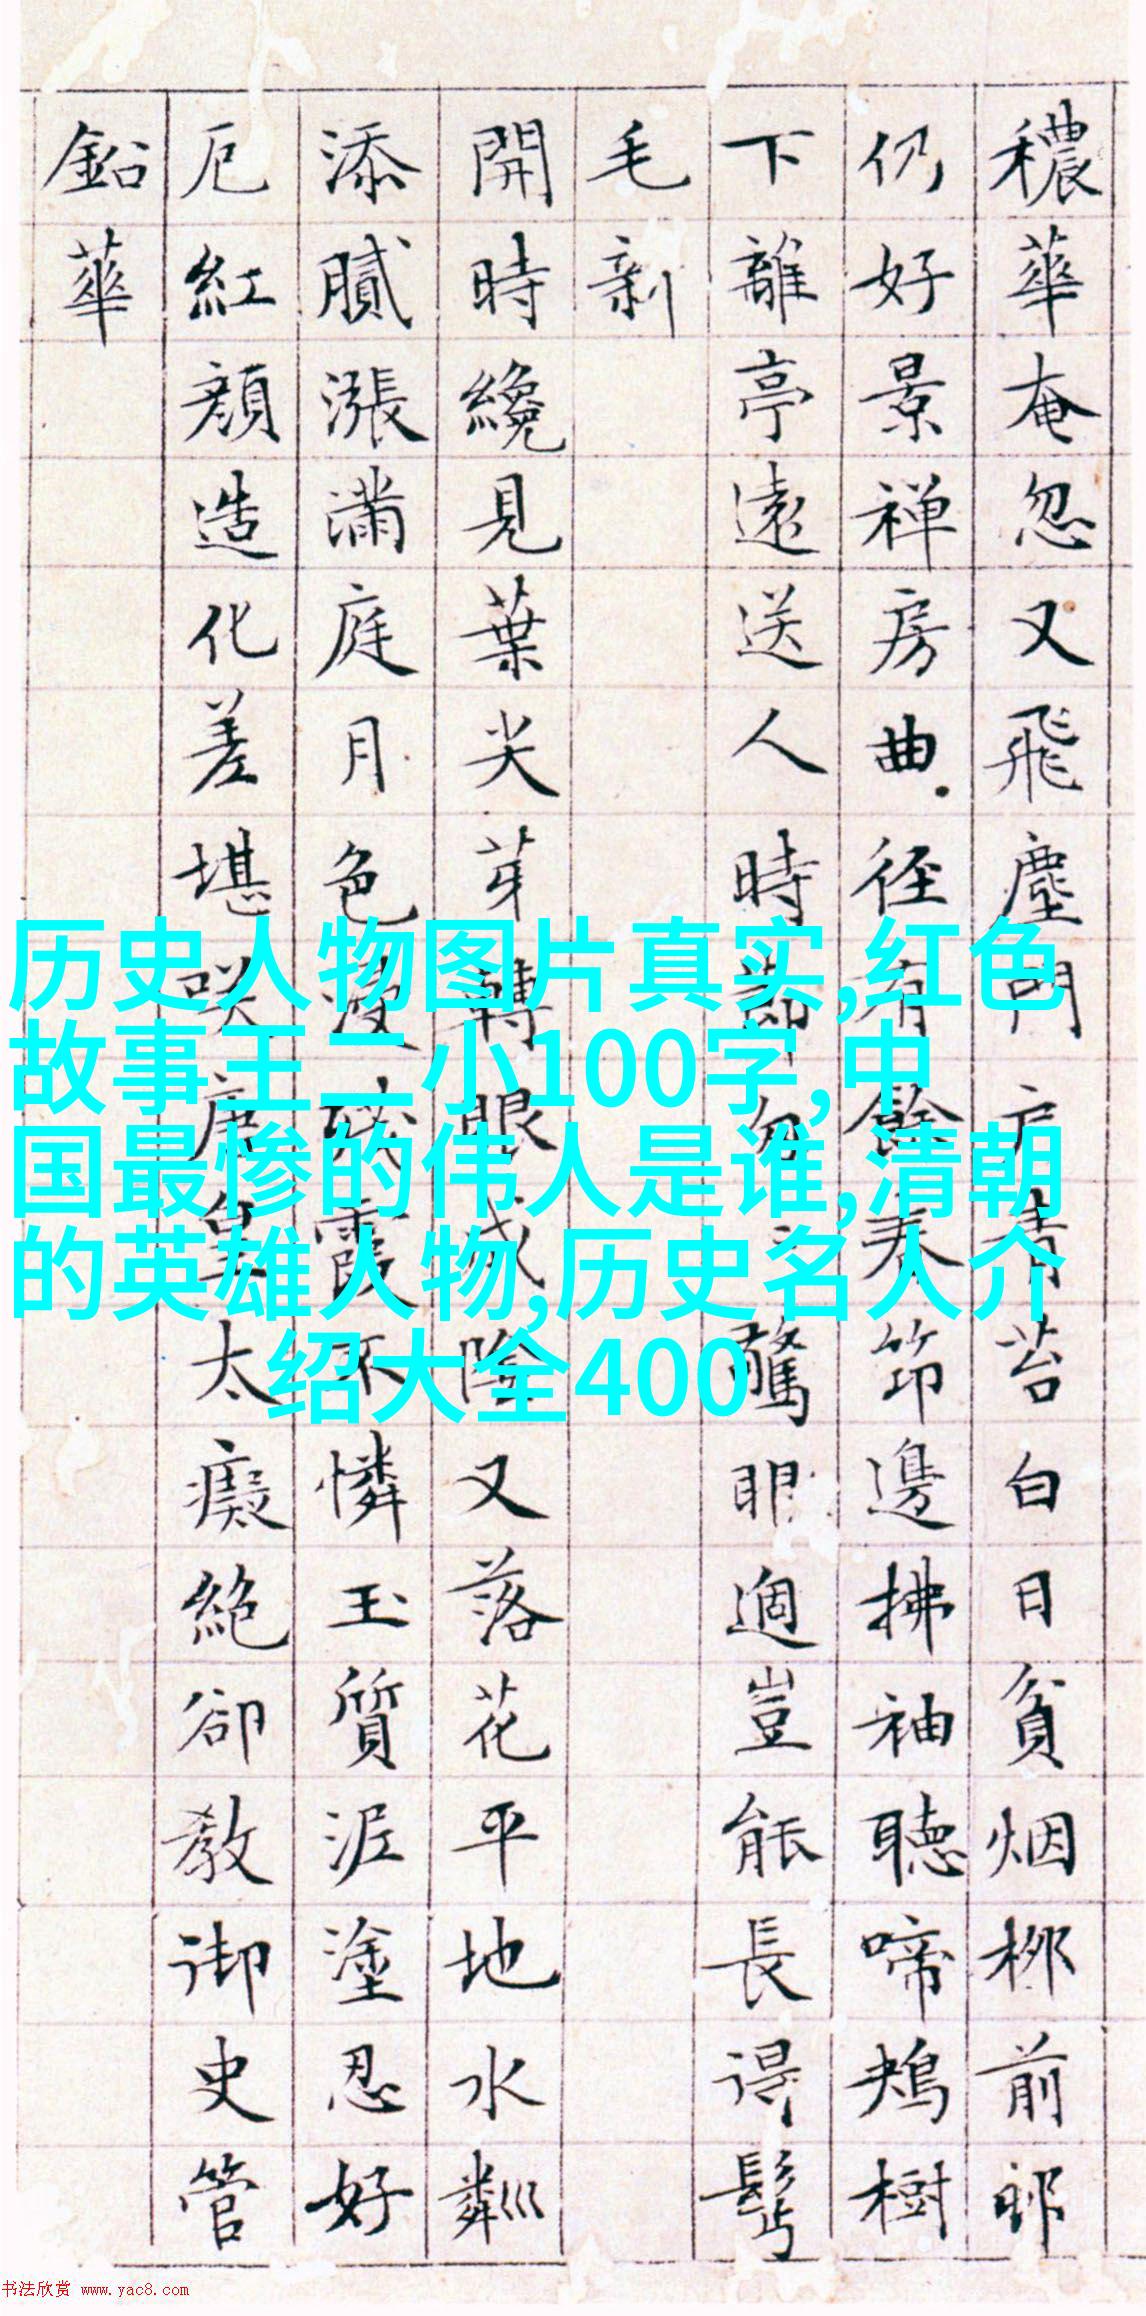 穠華奄忽又飛塵門戶青苔白日貧烟柳前邨
仍好景禅房曲径有餘春笻邊拂袖聽啼鴂樹
下離亭遠送人時節匆〻驚眼過豈能長得鬂
毛新
開時纔見葉尖芽轉眼成陰又落花平地水粼巛
添膩漲滿庭月色變殘霞不憐玉質泥塗忍好
厄紅顏造化差堪咲唐皇太癡絕卻教御史管
鉛華
历史人物图片真实,红色
故事王二小100字,中
国最惨的伟人是谁,清朝
的英雄人物,历史名人介
绍大全400
书法欣赏 www.yac8.com